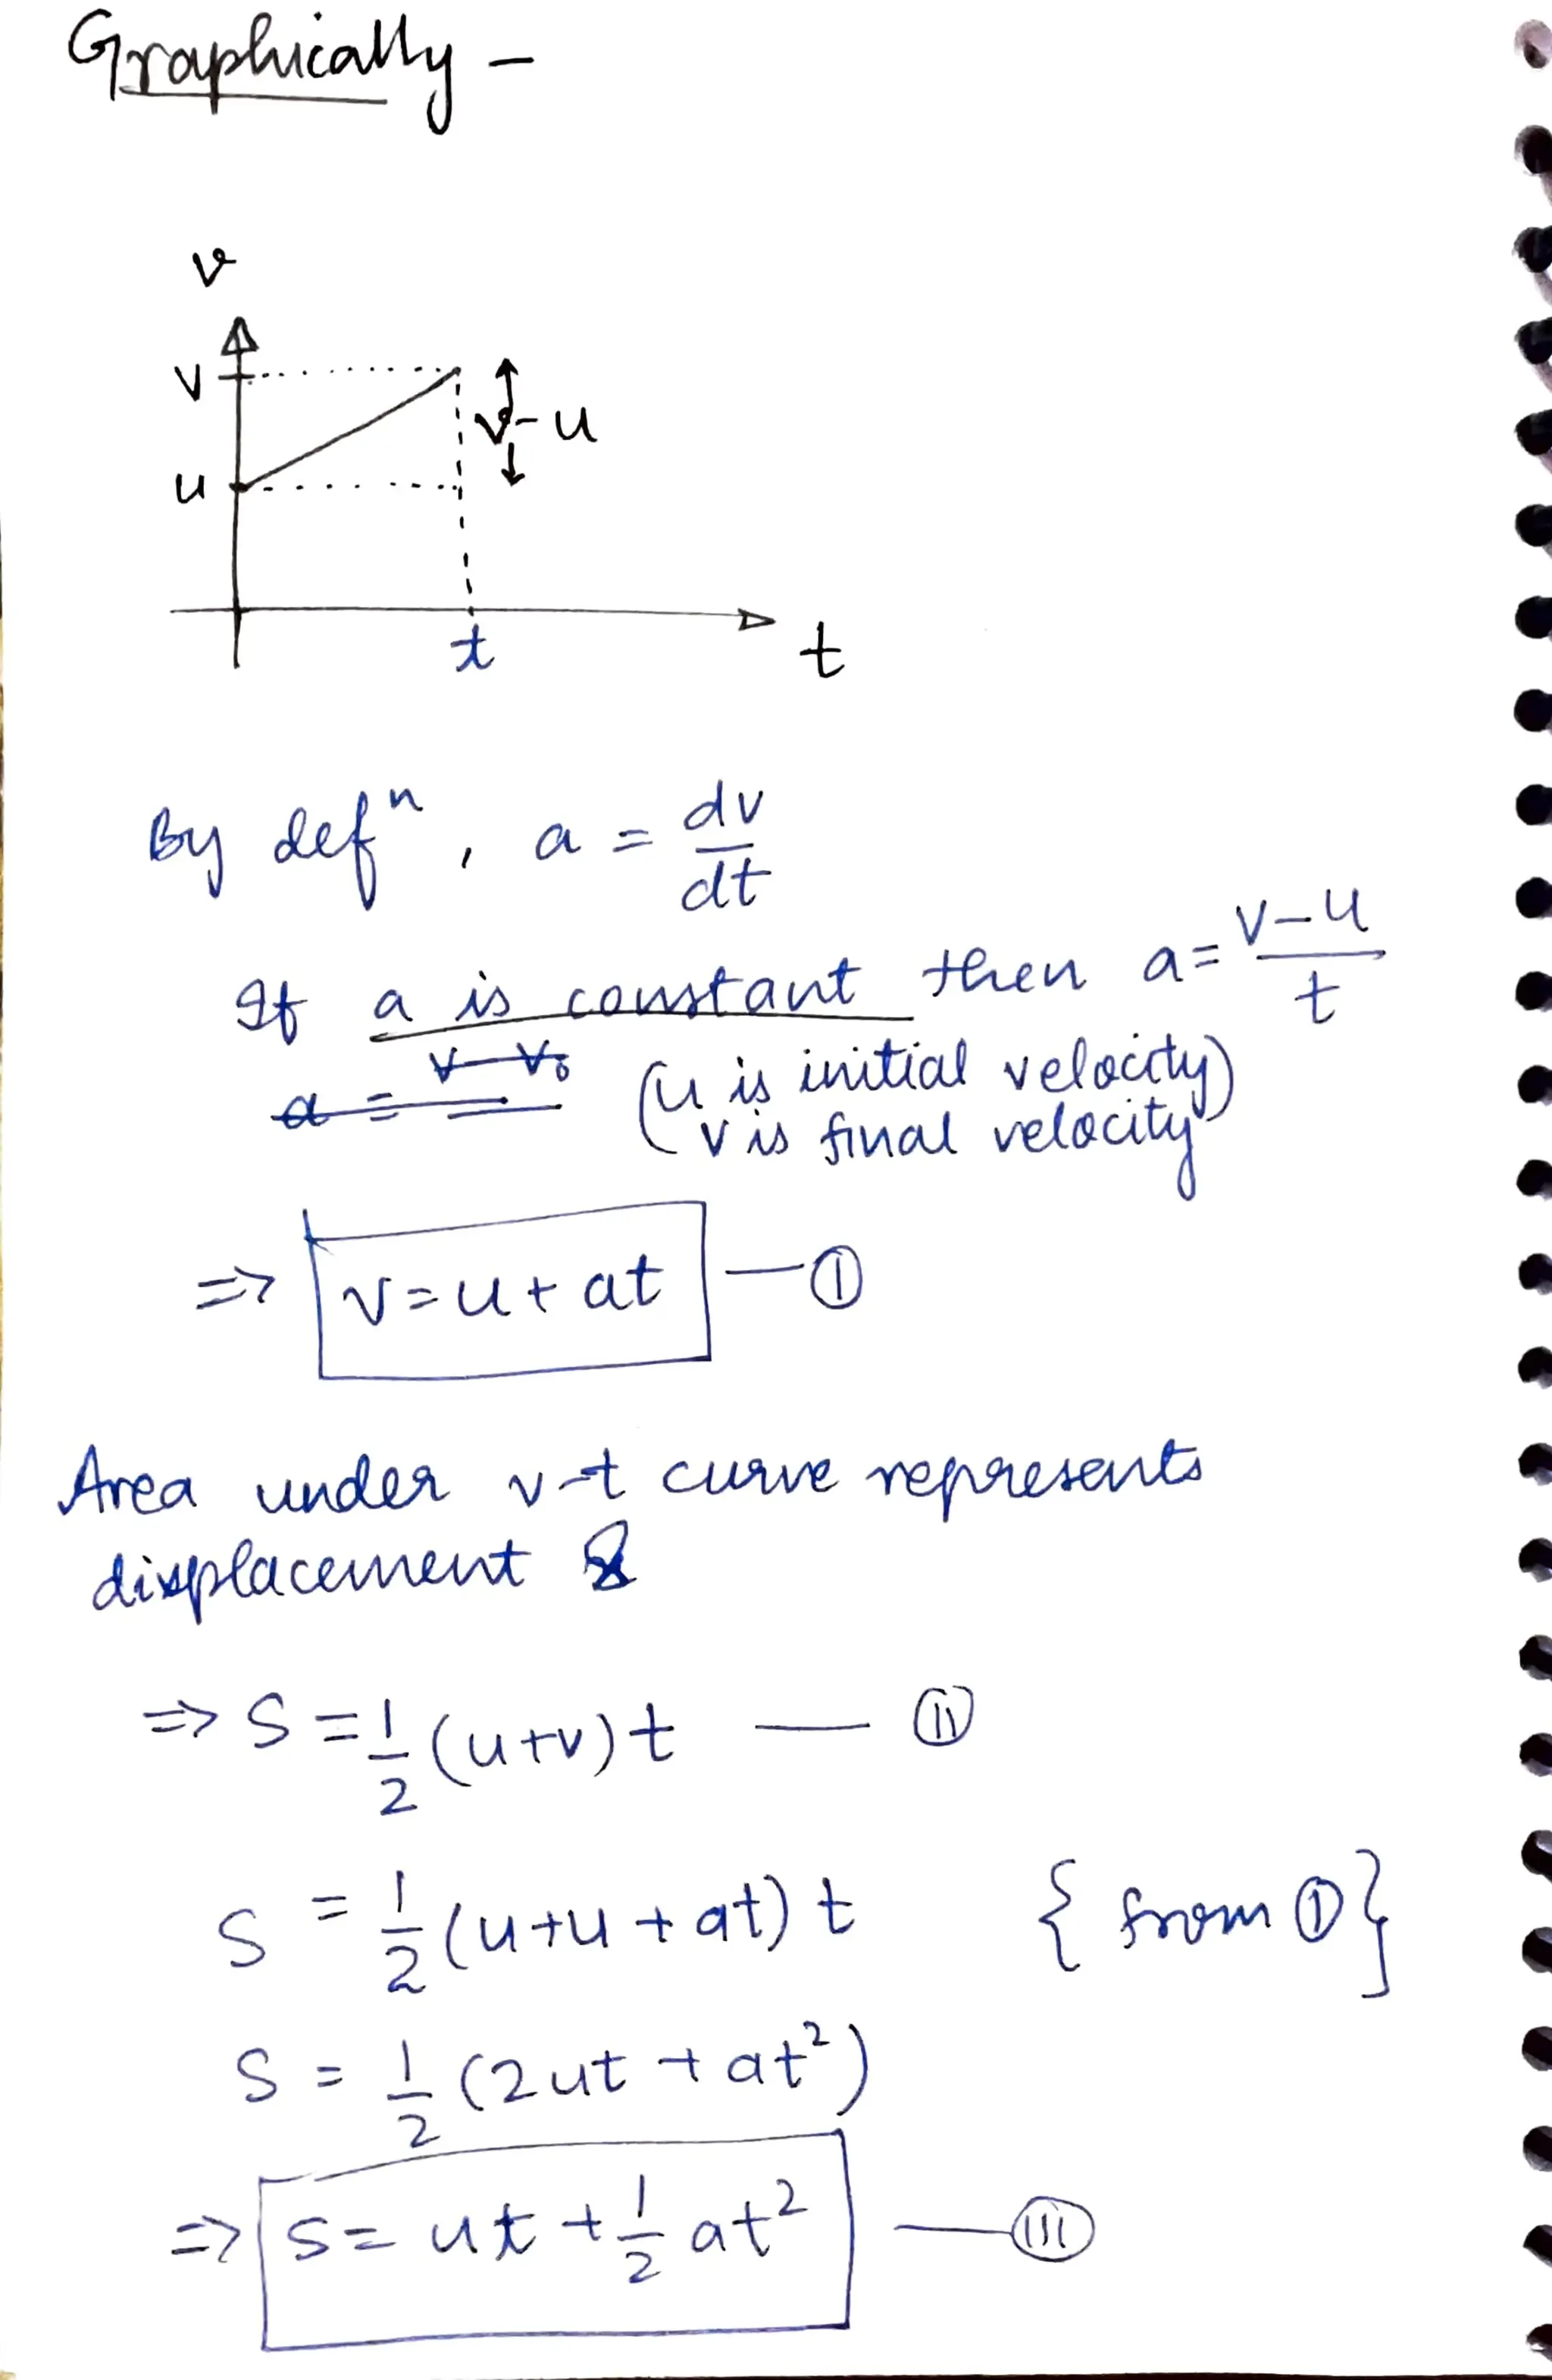 Graphically -
v
v
v-u
u
t
t
By defⁿ, a = dv/dt
If a is constant then a = v-u/t
a = v-v₀
(u is initial velocity)
v is final velocity
=> v = u + at — ①
Area under v-t curve represents
displacement
=> S = 1/2 (u+v) t — ⓘⓘ
S = 1/2 (u+u+at) t { from ① }
S = 1/2 (2ut + at²)
=> S = ut + 1/2 at² — ⓘⓘⓘ